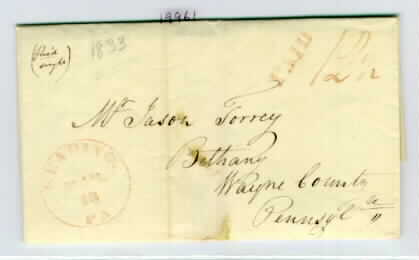 19961
(Paid
single)
1833
PAID
12½
Mr Jason Torrey
Bethany
Wayne County
Pennsyla
READING
28
PA